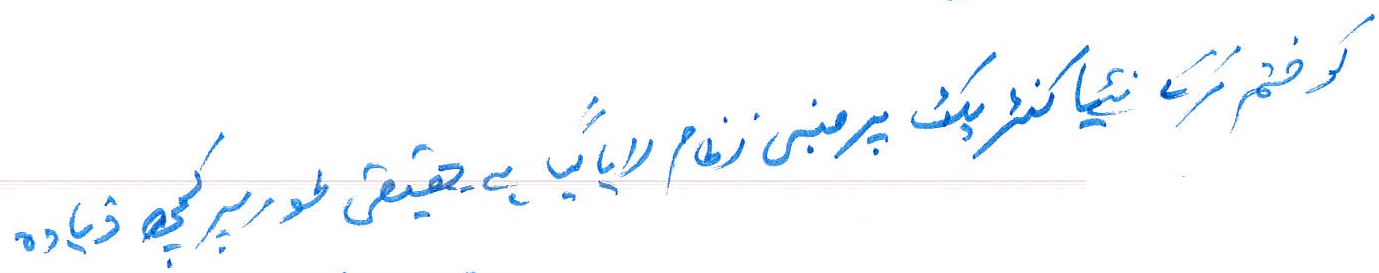 کو ختم کرکے نئیا کنٹریکٹ پر مبنی نظام لایا گیا ہے حقیقی طور پر کچھ ذیادہ